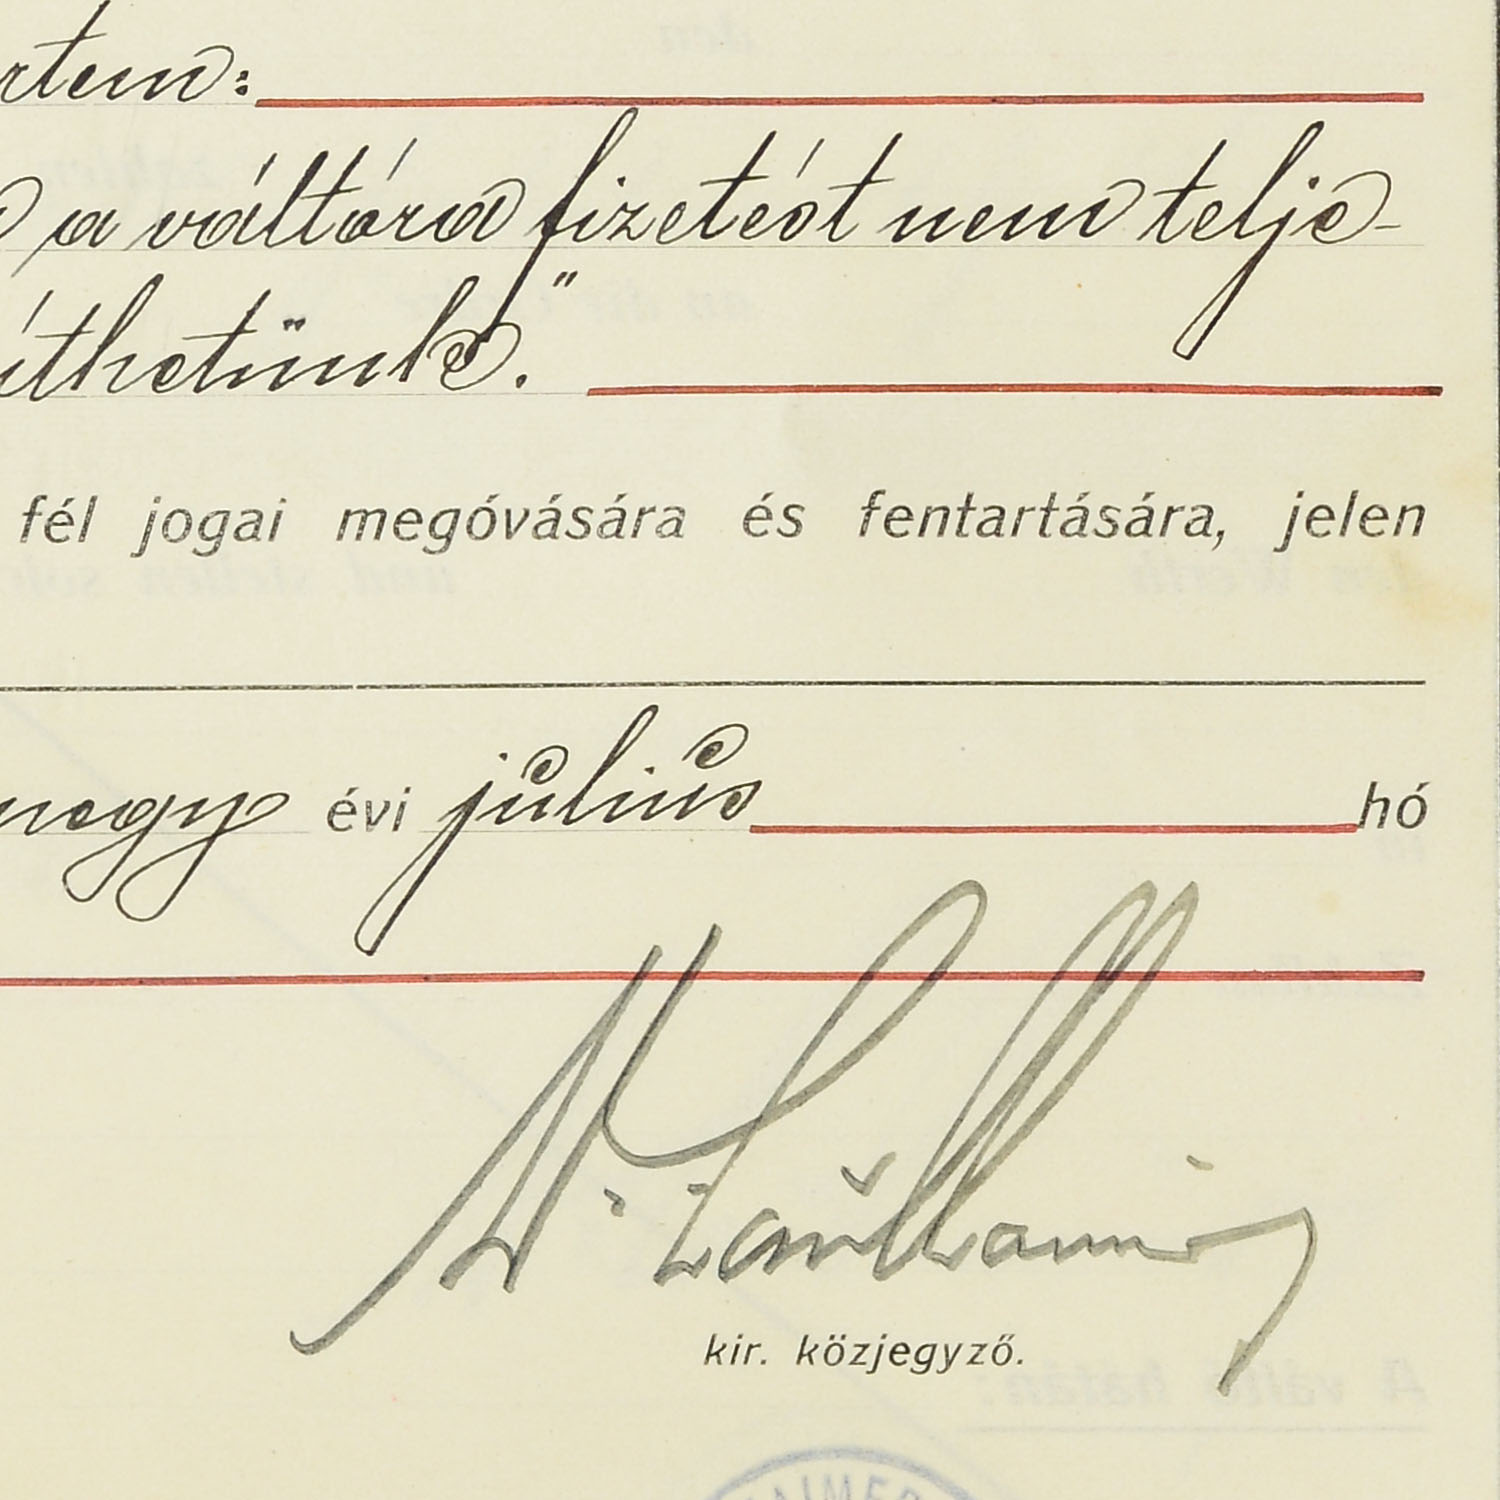 rtem:
a váltóra fizetést nem telje-
íthetünk."
fél jogai megóvására és fentartására, jelen
negy évi július hó
kir. közjegyző.